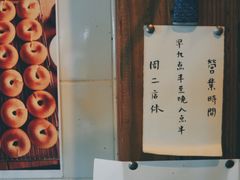 營業時間
早九点半至晚八点半
周二店休